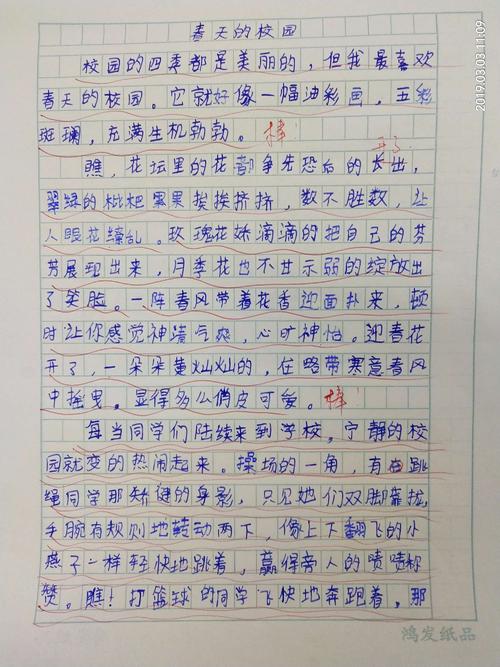 春天的校园
校园的四季都是美丽的，但我最喜欢
春天的校园。它就好像一幅油彩画，五彩
斑斓，充满生机勃勃。棒
开了
瞧，花坛里的花都争先恐后的长出，
翠绿的枇杷累累挨挨挤挤，数不胜数，让
人眼花缭乱。玫瑰花娇滴滴的把自己的芬
芳展现出来，月季花也不甘示弱的绽放出
了笑脸。一阵春风带着花香迎面扑来，顿
时让你感觉神清气爽，心旷神怡。迎春花
开了，一朵朵黄灿灿的，在略带寒意春风
中摇曳。显得多么俏皮可爱。棒
每当同学们陆续来到学校。宁静的校
园就变的热闹起来。操场的一角，有跳
绳同学那矫健的身影，只见她们双脚靠拢，
手腕有规则地转动两下，像上下翻飞的小
燕子一样轻快地跳着，赢得旁人的啧啧称
赞。瞧！打篮球的同学飞快地奔跑着，那
鸿发纸品
2019.03.03 11:09